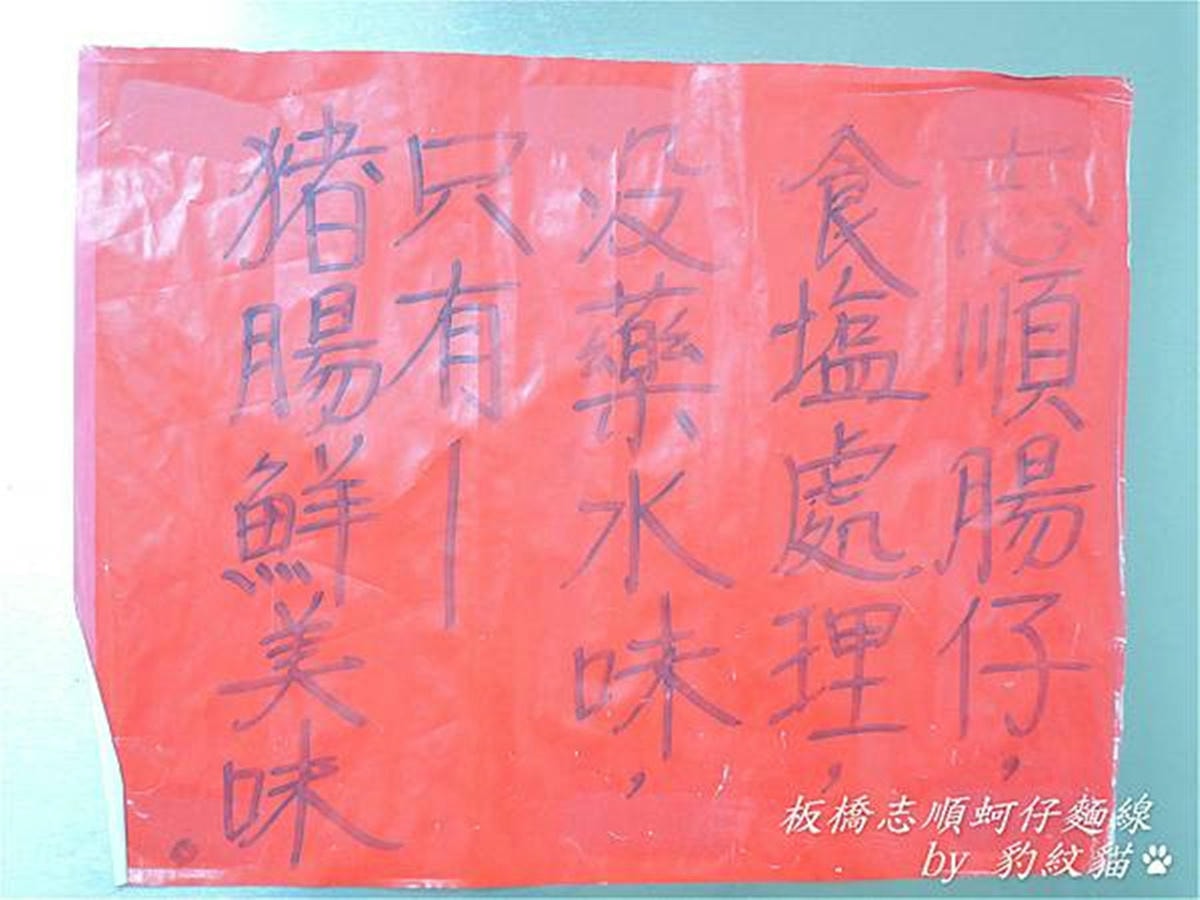 志順腸仔，
食塩處理，
没藥水味，
只有—
猪腸鮮美味。
板橋志順蚵仔麵線
by 豹紋貓